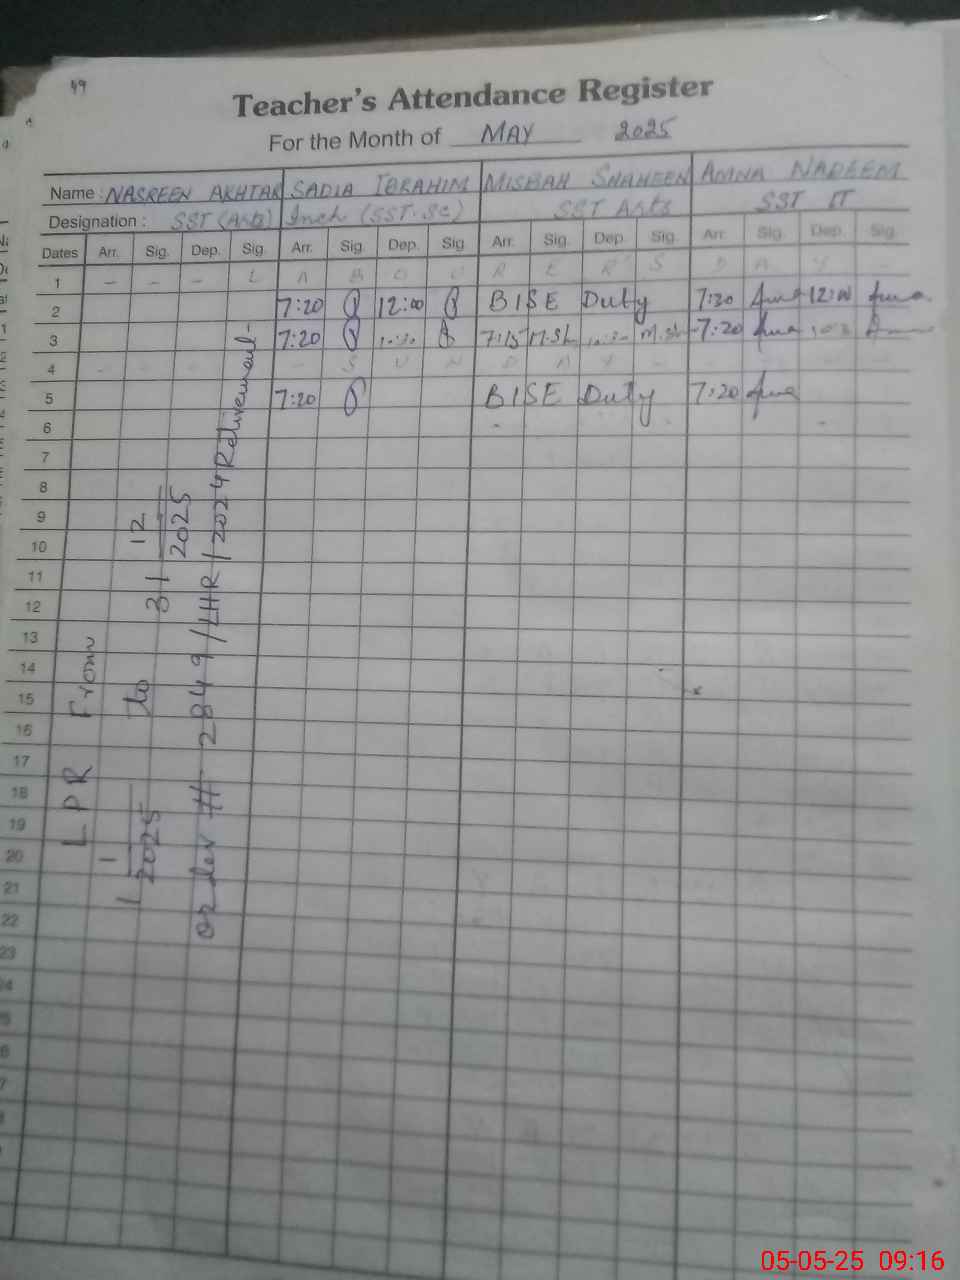 49
Teacher's Attendance Register
For the Month of MAY 2025
Name : NASREEN AKHTAR SADIA IBRAHIM MISBAH SHAHEEN AMNA NADEEM
Designation : SST (Arts) Inch (SST-Sc) SST Arts SST IT
Dates Arr. Sig. Dep. Sig. Arr. Sig. Dep. Sig. Arr. Sig. Dep. Sig. Arr. Sig. Dep. Sig.
1 - - - L A B O U R L R S D A Y -
2 7:20 12:00 BISE Duty 7:20 12:00
3 7:20 7:15 M.Sh M.Sh 7:20
4 - - - - - S U N D A Y -
5 7:20 BISE Duty 7:20
6
7
8
9
10
11
12
13
14
15
16
17
18
19
20
21
22
23
24
5
6
7
LPR From
1 1 2025 to 31 12 2025
order # 2849/LHR/2024 Retirement-
05-05-25 09:16